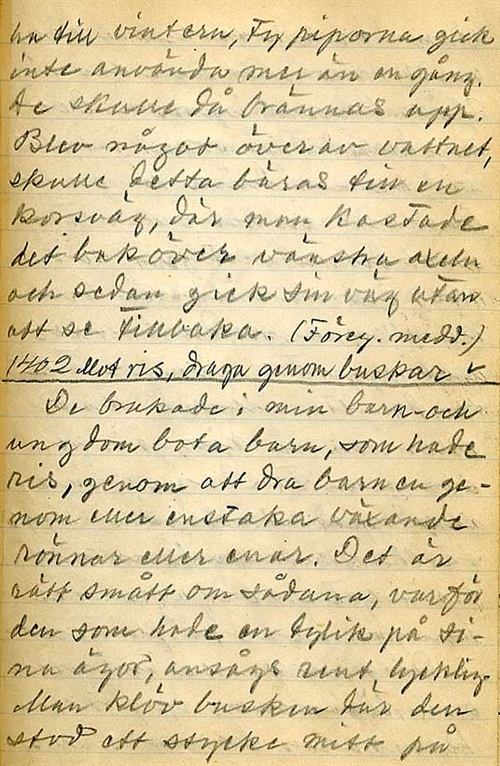 ha till vintern, Ty piporna gick
inte använda mer än en gång.
De skulle då brännas upp.
Blev något över av vattnet,
skulle detta bäras till en
korsväg, där man kastade
det bak över vänstra axeln
och sedan gick sin väg utan
att se tillbaka. (Föreg. medd.)
1402 Mot ris, draga genom buskar ✓
De brukade i min barn- och
ungdom bota barn, som hade
ris, genom att dra barnen ge-
nom eller enstaka växande
rönnar eller enar. Det är
rätt smått om sådana, varför
den som hade en dylik på si-
na ägor, ansågs rent lycklig.
Man klöv busken där den
stod ett stycke mitt på